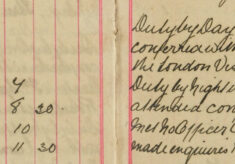 Duty by Day
conferred with
the London Dis
4 Duty by Night
8 30 attended con
10 met No Officer
11 30 made enquires